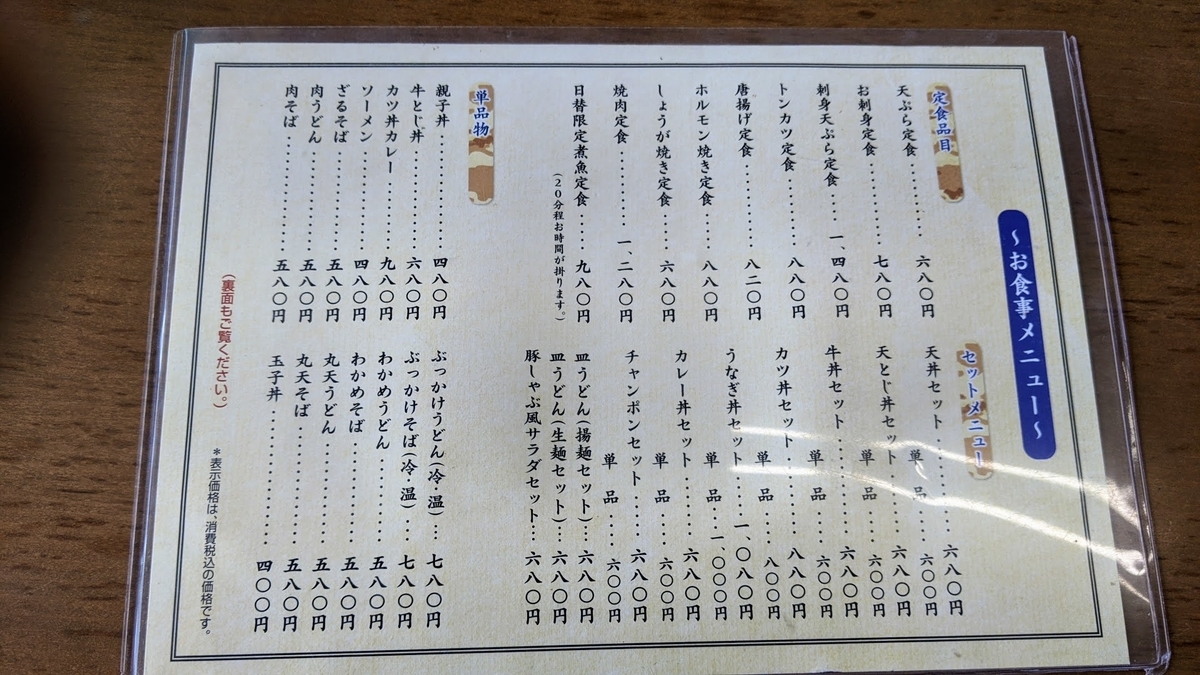 ～お食事メニュー～
定食品目
天ぷら定食………六八〇円
お刺身定食………七八〇円
刺身天ぷら定食……一、四八〇円
トンカツ定食………八八〇円
唐揚げ定食………八二〇円
ホルモン焼き定食……八八〇円
しょうが焼き定食……六八〇円
焼肉定食………一、二八〇円
日替限定煮魚定食……九八〇円
(20分程お時間が掛ります。)
セットメニュー
天丼セット………六八〇円
単品……六〇〇円
天とじ丼セット………六八〇円
単品……六〇〇円
牛丼セット………六八〇円
単品……六〇〇円
カツ丼セット………八八〇円
単品……八〇〇円
うなぎ丼セット……一、〇八〇円
単品……一、〇〇〇円
カレー丼セット………六八〇円
単品……六〇〇円
チャンポンセット……六八〇円
単品……六〇〇円
皿うどん(揚麺セット)…六八〇円
皿うどん(生麺セット)…六八〇円
豚しゃぶ風サラダセット…六八〇円
単品物
親子丼………四八〇円
牛とじ丼………六八〇円
カツ丼カレー………九八〇円
ソーメン………四八〇円
ざるそば………五八〇円
肉うどん………五八〇円
肉そば………五八〇円
ぶっかけうどん(冷・温)…七八〇円
ぶっかけそば(冷・温)…七八〇円
わかめうどん………五八〇円
わかめそば………五八〇円
丸天うどん………五八〇円
丸天そば………五八〇円
玉子丼………四〇〇円
(裏面もご覧ください。)
＊表示価格は、消費税込の価格です。